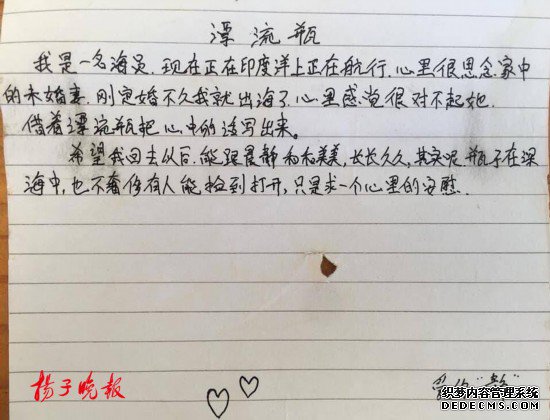 漂流瓶
我是一名海员，现在正在印度洋上正在航行，心里很思念家中
的未婚妻，刚定婚不久我就出海了，心里感觉很对不起她，
借着漂流瓶把心中的话写出来。
希望我回去以后，能跟晨静和和美美，长长久久，其实呢，瓶子在深
海中，也不奢侈有人能捡到打开，只是求一个心里的安慰．
扬子晚报
织梦内容管理系统
DEDECMS.COM